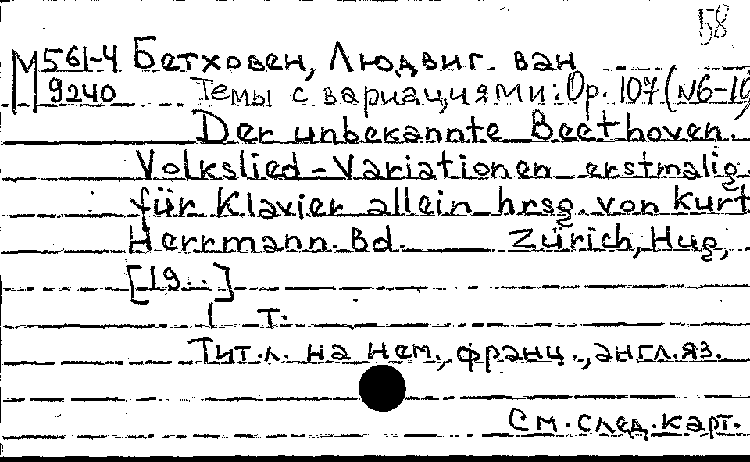 58
М 561-4 Бетховен, Людвиг ван
9240 Темы с вариациями: Op. 107 (N6-10
Der unbekannte Beethoven.
Volkslied-Variationen erstmalig
für Klavier allein hrsg. von Kurt
Herrmann. Bd. Zürich, Hug,
[19..]
т.
Тит.л. на нем., франц., англ.яз.
См. след. карт.